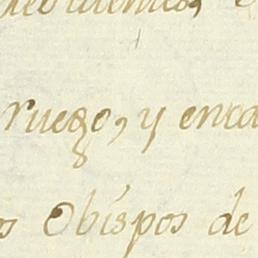 ruego, y enca
os Obispos de